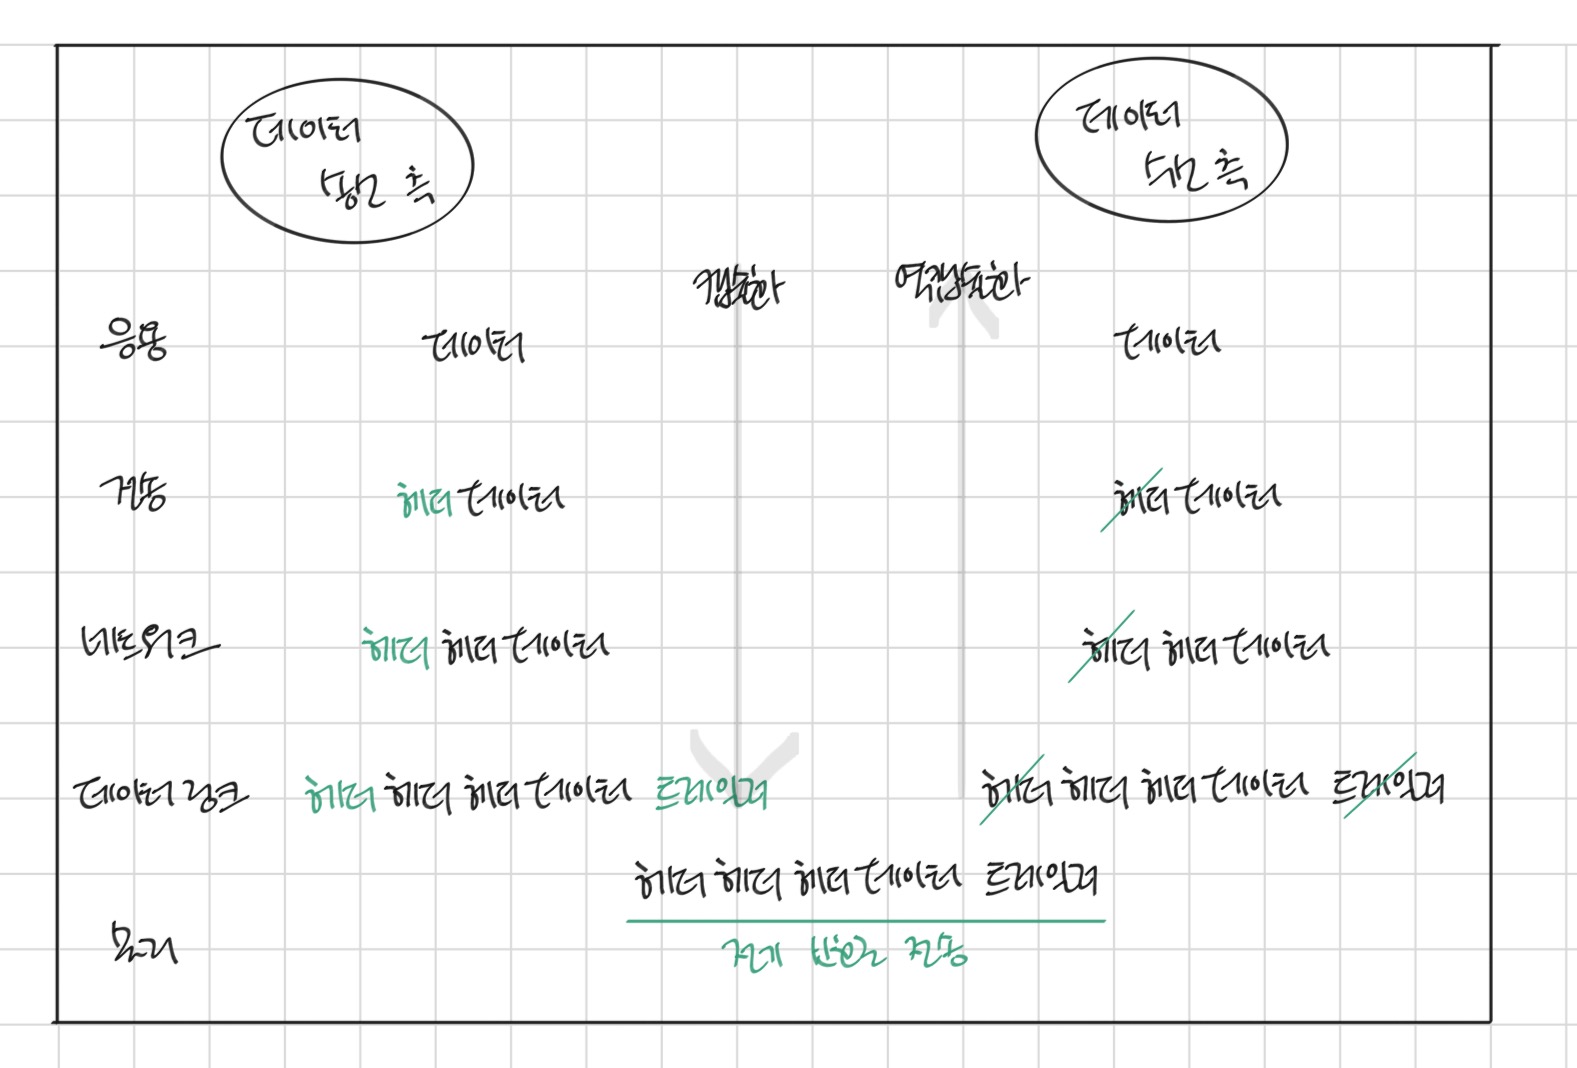 데이터
송신 측
데이터
수신 측
캡슐화
역캡슐화
응용
데이터
데이터
전송
헤더 데이터
헤더 데이터
네트워크
헤더 헤더 데이터
헤더 헤더 데이터
데이터 링크
헤더 헤더 헤더 데이터 트레일러
헤더 헤더 헤더 데이터 트레일러
헤더 헤더 헤더 데이터 트레일러
물리
전기 신호로 전송